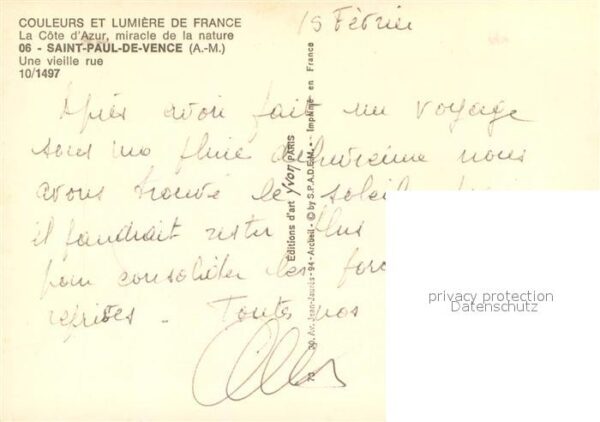 COULEURS ET LUMIÈRE DE FRANCE
La Côte d'Azur, miracle de la nature
06 - SAINT-PAUL-DE-VENCE (A.-M.)
Une vieille rue
10/1497
15 Février
Après avoir fait un voyage
sous une pluie nous
avons trouvé le soleil
il faudrait rester plus
pour consolider les forc
reprises. Toutes nos
Éditions d'art Yvon PARIS
70 30, Av. Jean-Jaurès - 94 - Arcueil - © by S.P.A.D.E.M. - Imprimé en France
privacy protection
Datenschutz